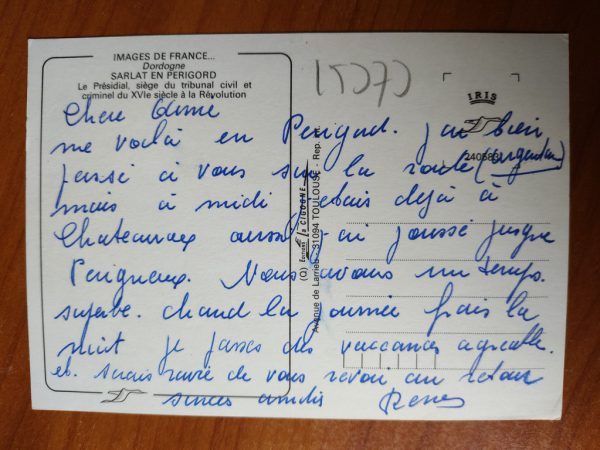 IMAGES DE FRANCE...
Dordogne
SARLAT EN PERIGORD
Le Présidial, siège du tribunal civil et
criminel du XVIe siècle à la Révolution
IRIS
Chère
me voilà en Périgord. j'ai bien
passé à vous sur la route (Argentan)
mais à midi j'etais dejà à
Chateauroux aussi j'ai poussé jusque
Perigueux. Nous avons un temps
superbe. chaud la journée frais la
nuit je passe des vaccances agreable.
et serais ravie de vous revoir au retour
amitiés
Editions la CIGOGNE
Avenue de Larrieu - 31094 TOULOUSE - Rep.